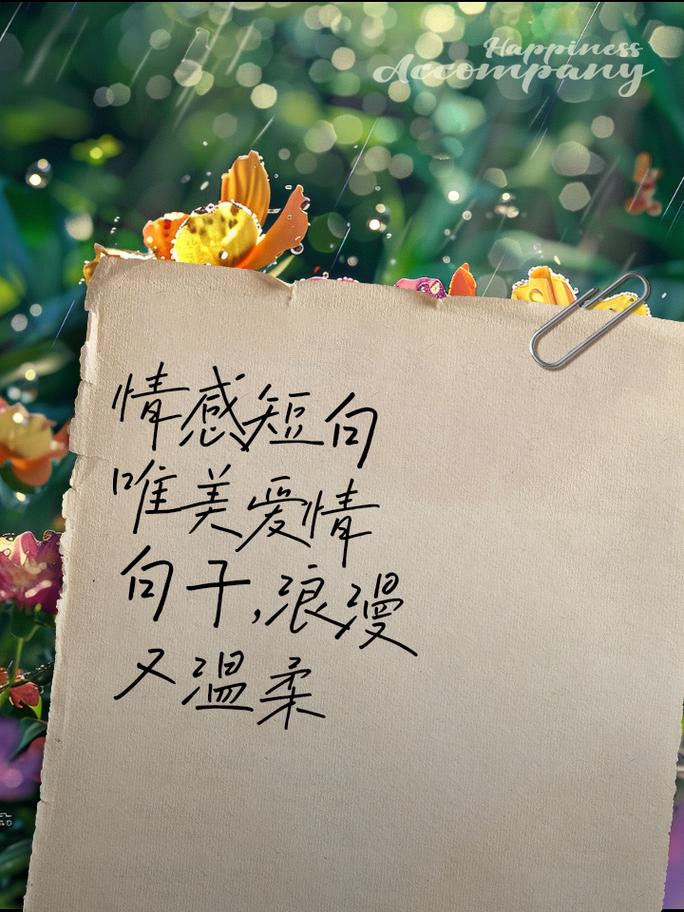 Happiness
Accompany
情感短句
唯美爱情
句子,浪漫
又温柔